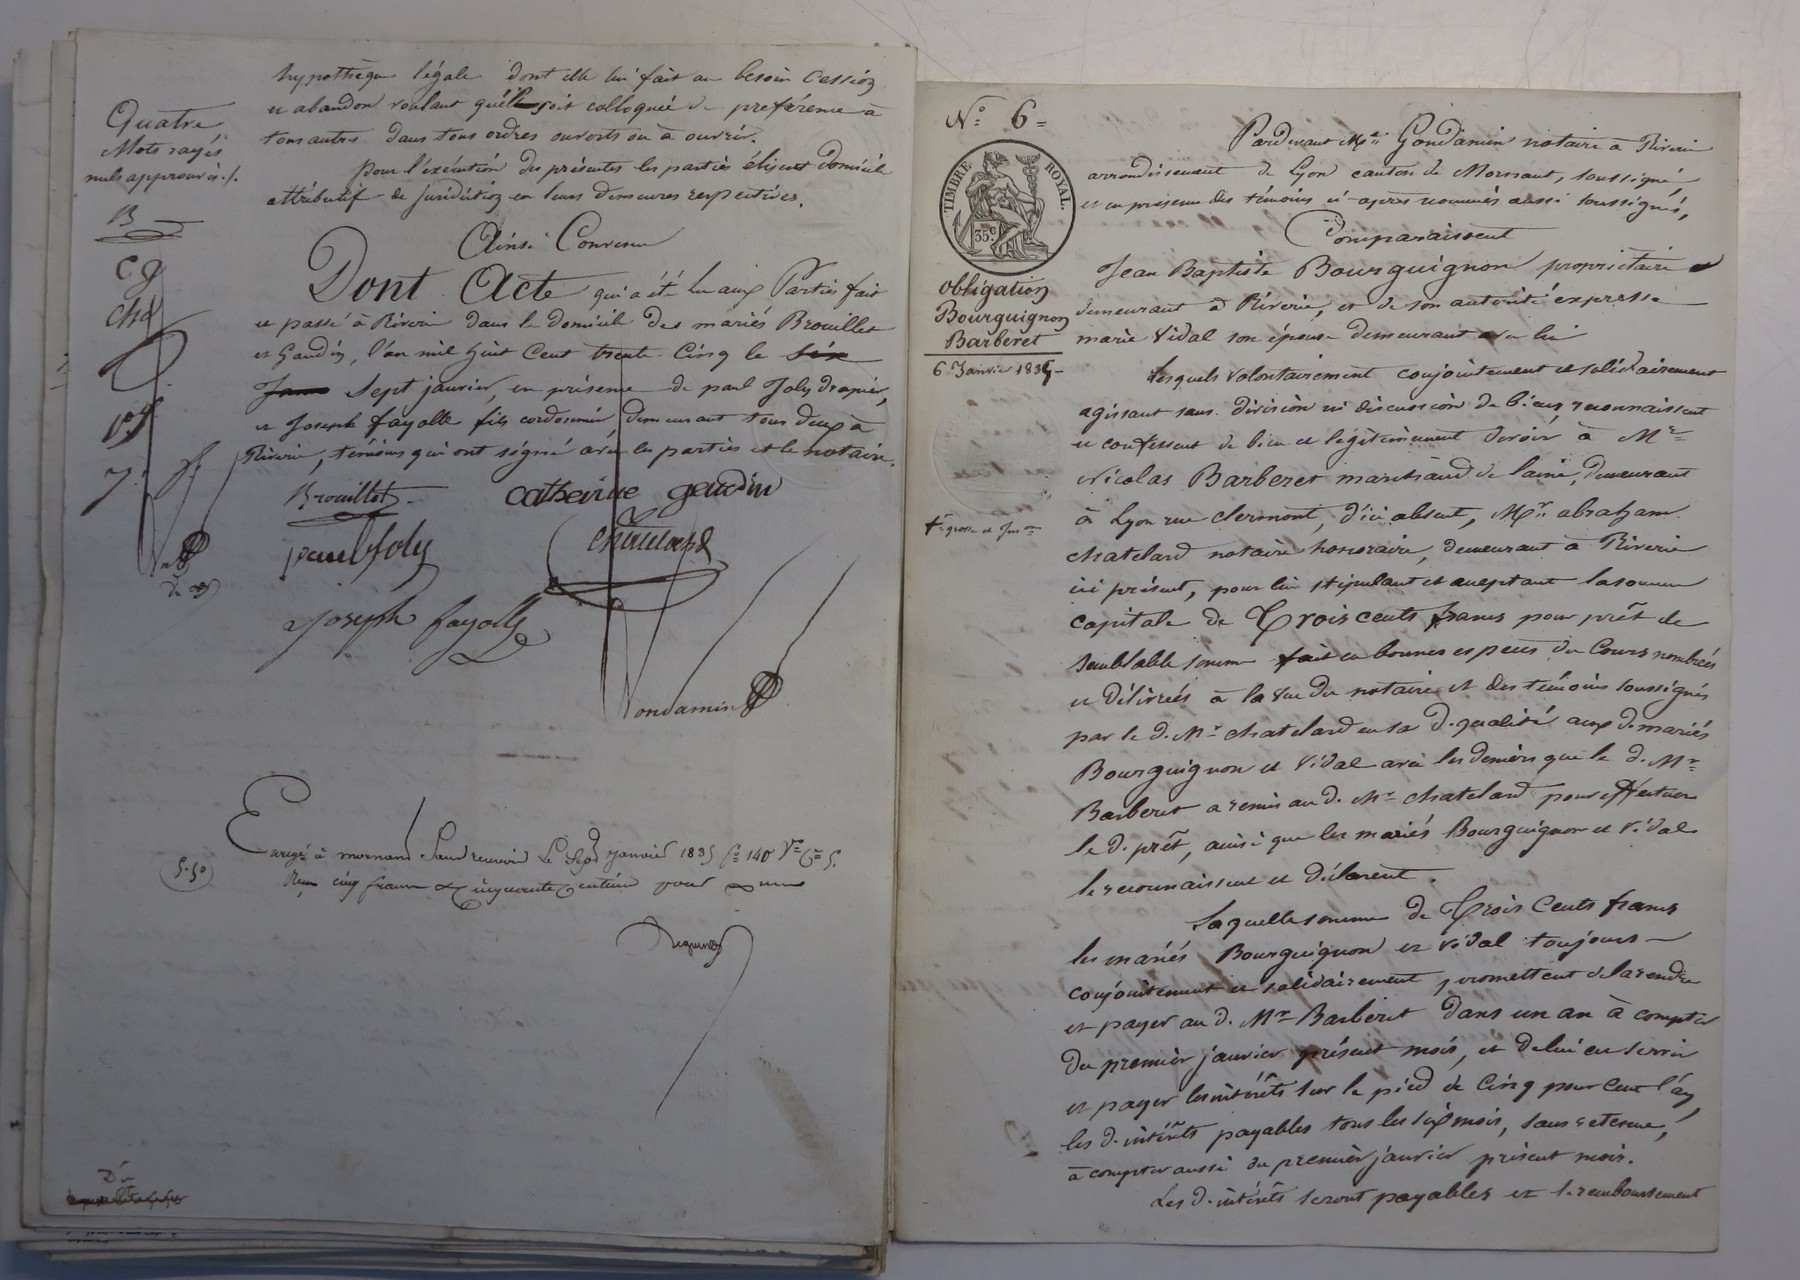 hypothèque légale dont elle lui fait au besoin cession
et abandon voulant qu'elle soit colloquée de preférence à
tous autres dans tous ordres ouverts ou à ouvrir.
pour l'exécution des présentes les parties élisent domicile
attributif de juridiction en leurs demeures respectives.
Ainsi Convenu
Dont Acte qui a été lu aux Parties fait
et passé à Riverie dans le domicile des mariés Brouillet
et Gaudin, l'an mil huit Cent trente-Cinq le six
Janv Sept janvier, en présence de paul Joly drapier,
et Joseph fayolle fils cordonnier, demeurant tous deux à
Riverie, témoins qui ont signé avec les parties et le notaire.
Quatre
Mots rayés
nuls approuvés./.
B
C g
chd
pJ
J. f
Brouillet
catherine gaudin
paul Joly
chatelard
joseph fayolle
Gondamin
Enregé à mornand Sans renvoi Le Sept Janvier 1835 fo 140 Vo Ce 5.
Reçu cinq francs & cinquante centimes pour
5.50
N° 6=
TIMBRE ROYAL.
35c
obligation
Bourguignon
Barberet
6 Janvier 1835-
+ grosse et
Pardevant Me Gondamin notaire à Riverie
arrondissement de Lyon canton de Mornant, soussigné
et en présence des témoins ci-après nommés aussi soussignés,
Comparaissent
Jean Baptiste Bourguignon propriétaire
demeurant à Riverie, et de son autorité expresse
marie Vidal son épouse demeurant avec lui
Lesquels volontairement conjointement et solidairement
agissant sans division ni discussion de biens, reconnaissent
et confessent de bien et légitimement devoir à Mr
Nicolas Barberet marchand de laine, demeurant
à Lyon rue clermont, d'ici absent, Me abraham
chatelard notaire honoraire, demeurant à Riverie
ici présent, pour lui stipulant et acceptant la somme
capitale de Trois cents francs pour prêt de
semblable somme fait en bonnes especes du Cours nombrées
et délivrées à la vue du notaire et des témoins soussignés
par le d. Mr chatelard en sa d. qualité aux d. mariés
Bourguignon et Vidal avec les deniers que le d. Mr
Barberet a remis au d. Mr chatelard pour effectuer
le d. prêt, ainsi que les mariés Bourguignon et Vidal
le reconnaissent et déclarent.
Laquelle somme de Trois Cents francs
les mariés Bourguignon et Vidal toujours
conjointement et solidairement promettent de la rendre
et payer au d. Mr Barberet dans un an à compter
du premier janvier présent mois, et de lui en servir
et payer les intérêts sur le pied de Cinq pour Cent l'an,
les d. intérêts payables tous les six mois, sans retenue,
à compter aussi du premier janvier présent mois.
Les d. intérêts seront payables et le remboursement